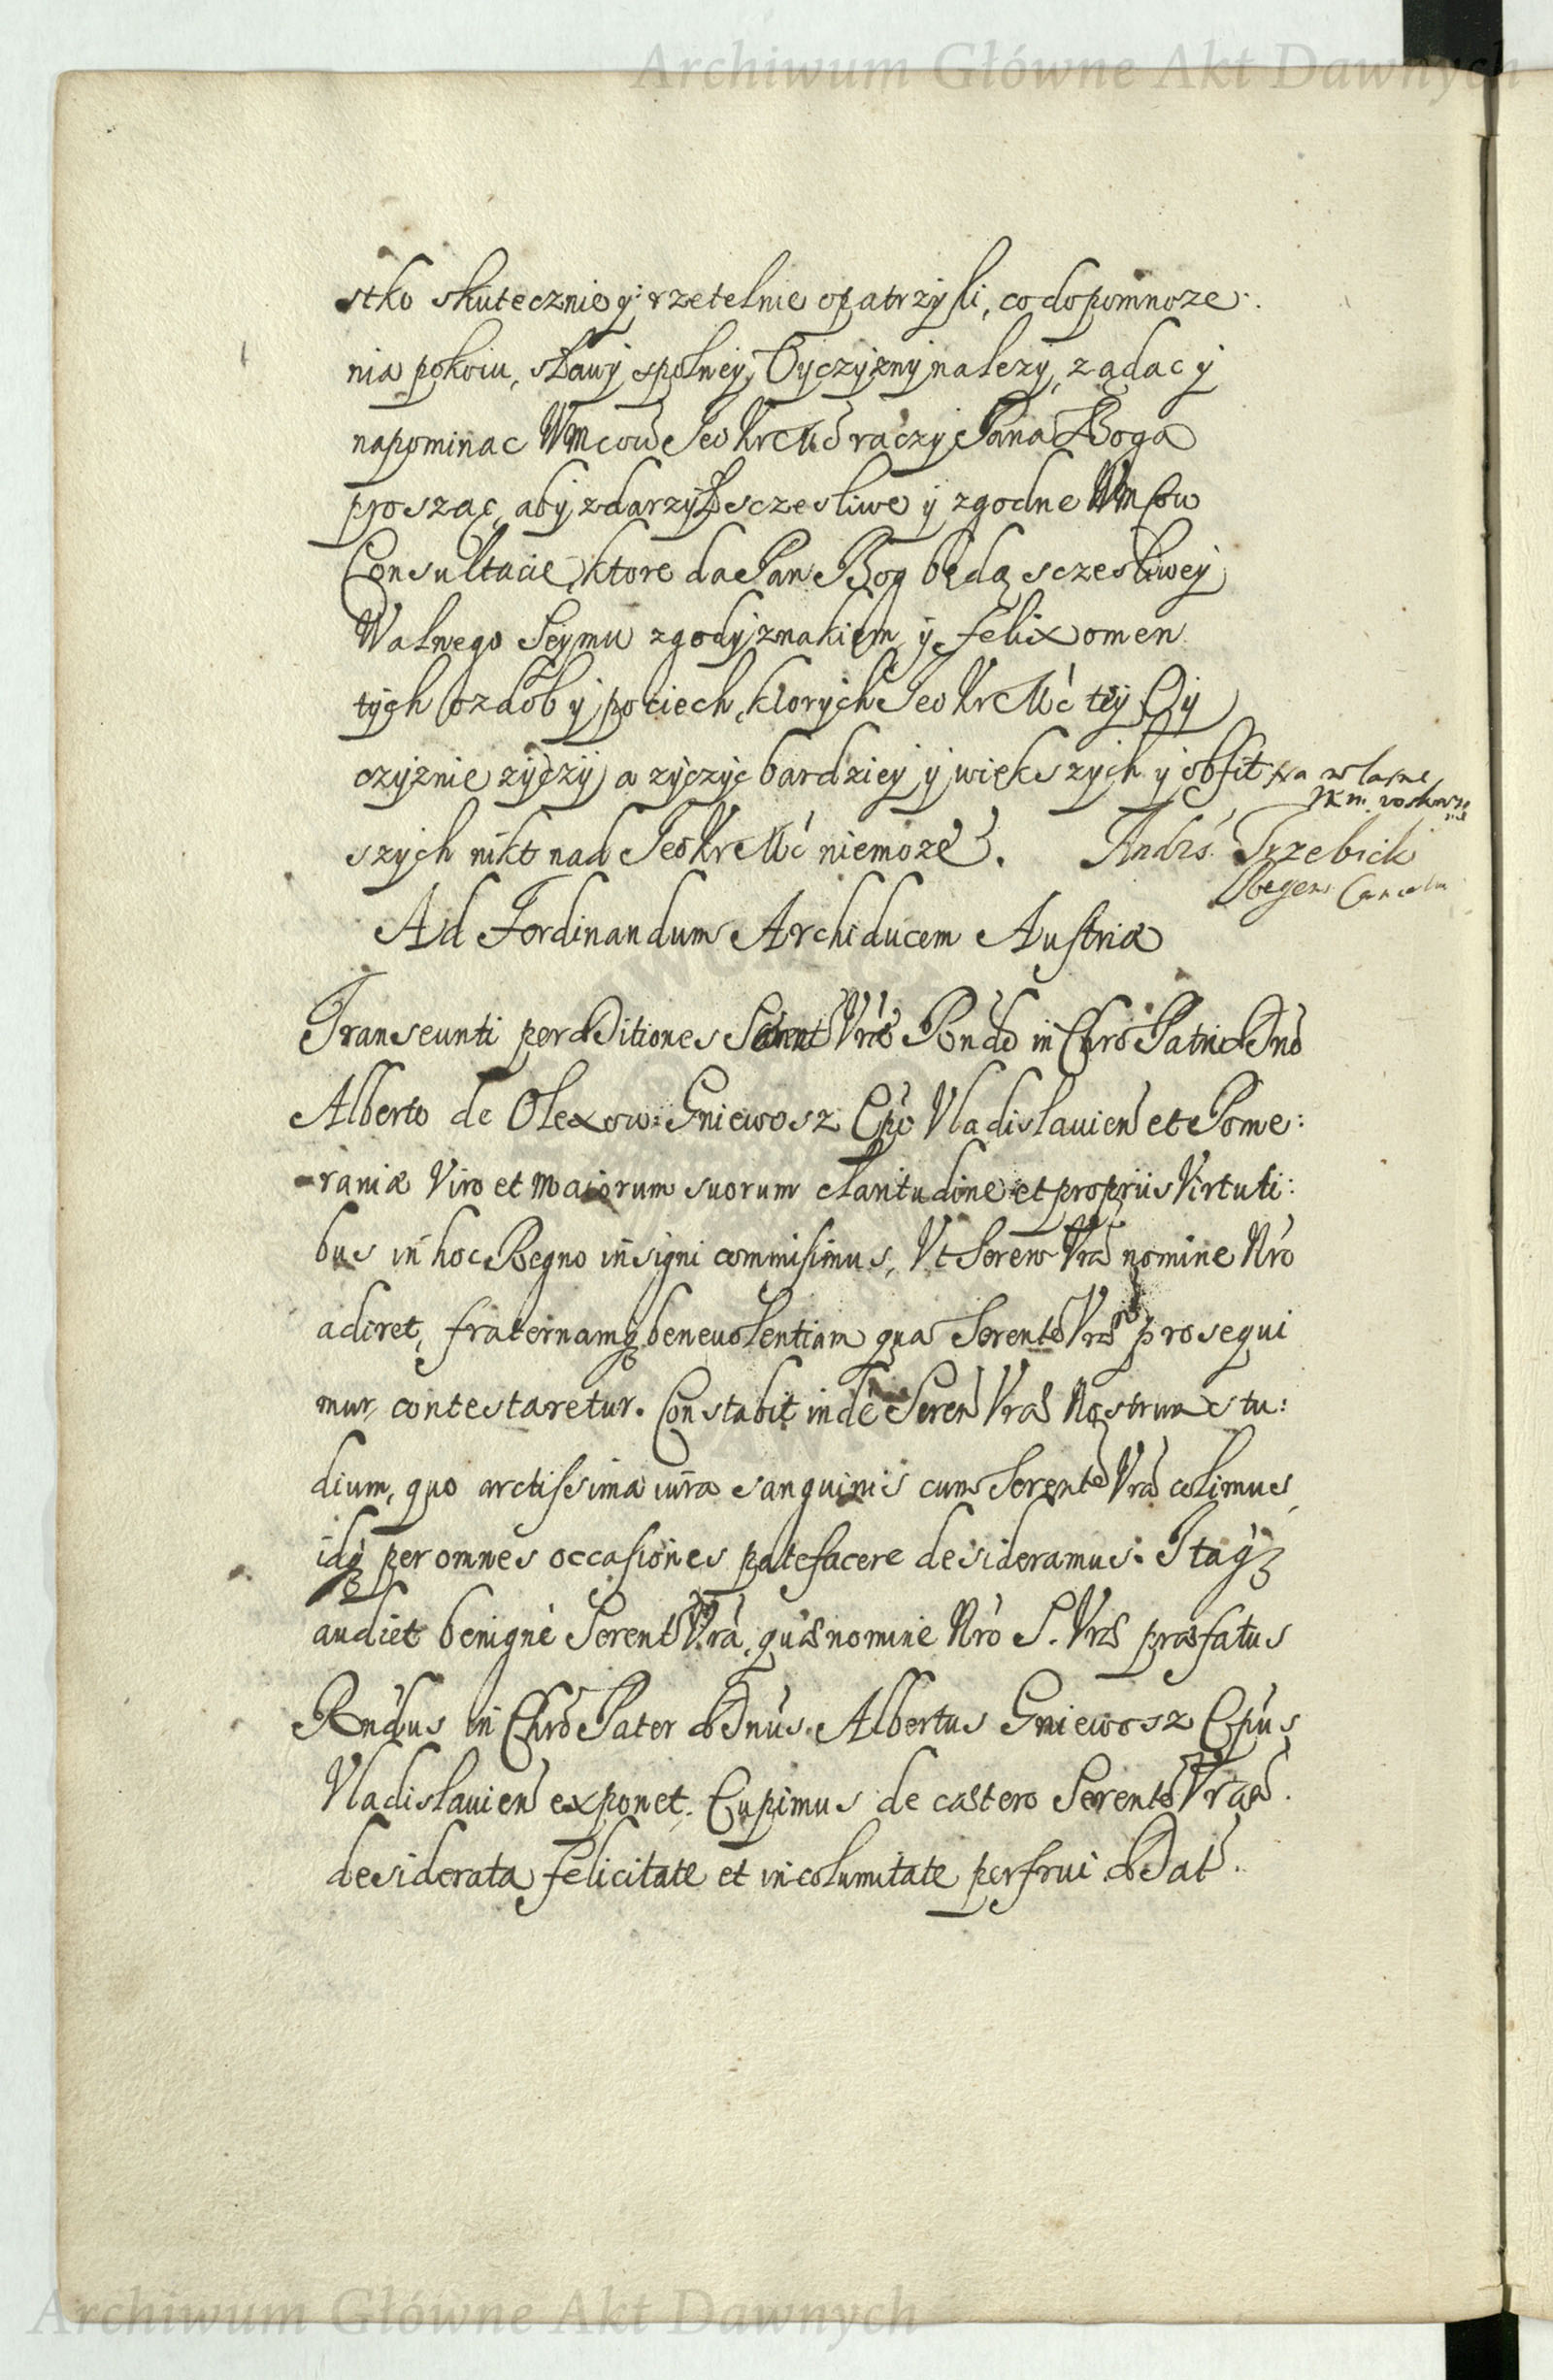 Archiwum Główne Akt Dawnych
stko skutecznie y rzetelnie opatrzyli, co do pomnoze:
nia pokoiu, sławy spolney Oyczyzny nalezy, ządac y
napominac Wmcow Jeo Kr Mć raczy Pana Boga
prosząc, aby zdarzył sczesliwe y zgodne Wmcow
Consultacie, ktore da Pan Bog będą sczesliwey
Walnego Seymu zgody znakiem y felix omen
tych ozdob y pociech, ktorych Jeo Kr Mć tey Oy
czyznie zyczy, a zyczyc bardziey y wiekszych y obfit
szych nikt nad Jeo Kr Mć niemoze.
na własne
JKM. roskaza
nie
Andrs. Trzebicki
Regens Cancella
Ad Ferdinandum Archiducem Austriæ
Transeunti per Ditiones Serent Vræ Rondo in Chro Patri Dno
Alberto de Olexow: Gniewosz Epo Vladislauien et Pome:
raniæ Viro et maiorum suorum claritudine et propriis Virtuti:
bus in hoc Regno insigni commisimus, Vt Seren Vrã nomine Nro
adiret, fraternamq; beneuolentiam qua Serente Vrã prosequi
mur, contestaretur. Constabit inde Seren Vræ Nostrum stu:
dium, quo arctissima iura sanguinis cum Serente Vrã colimus,
idq; per omnes occasiones patefacere desideramus. Itaq;
audiet benigne Serent Vra, quæ nomine Nro S. Vræ præfatus
Rndus in Chro Pater Dnus Albertus Gniewosz Epus
Vladislauien exponet. Cupimus de cætero Serente Vram
desiderata felicitate et incolumitate perfrui Dat.
Archiwum Główne Akt Dawnych